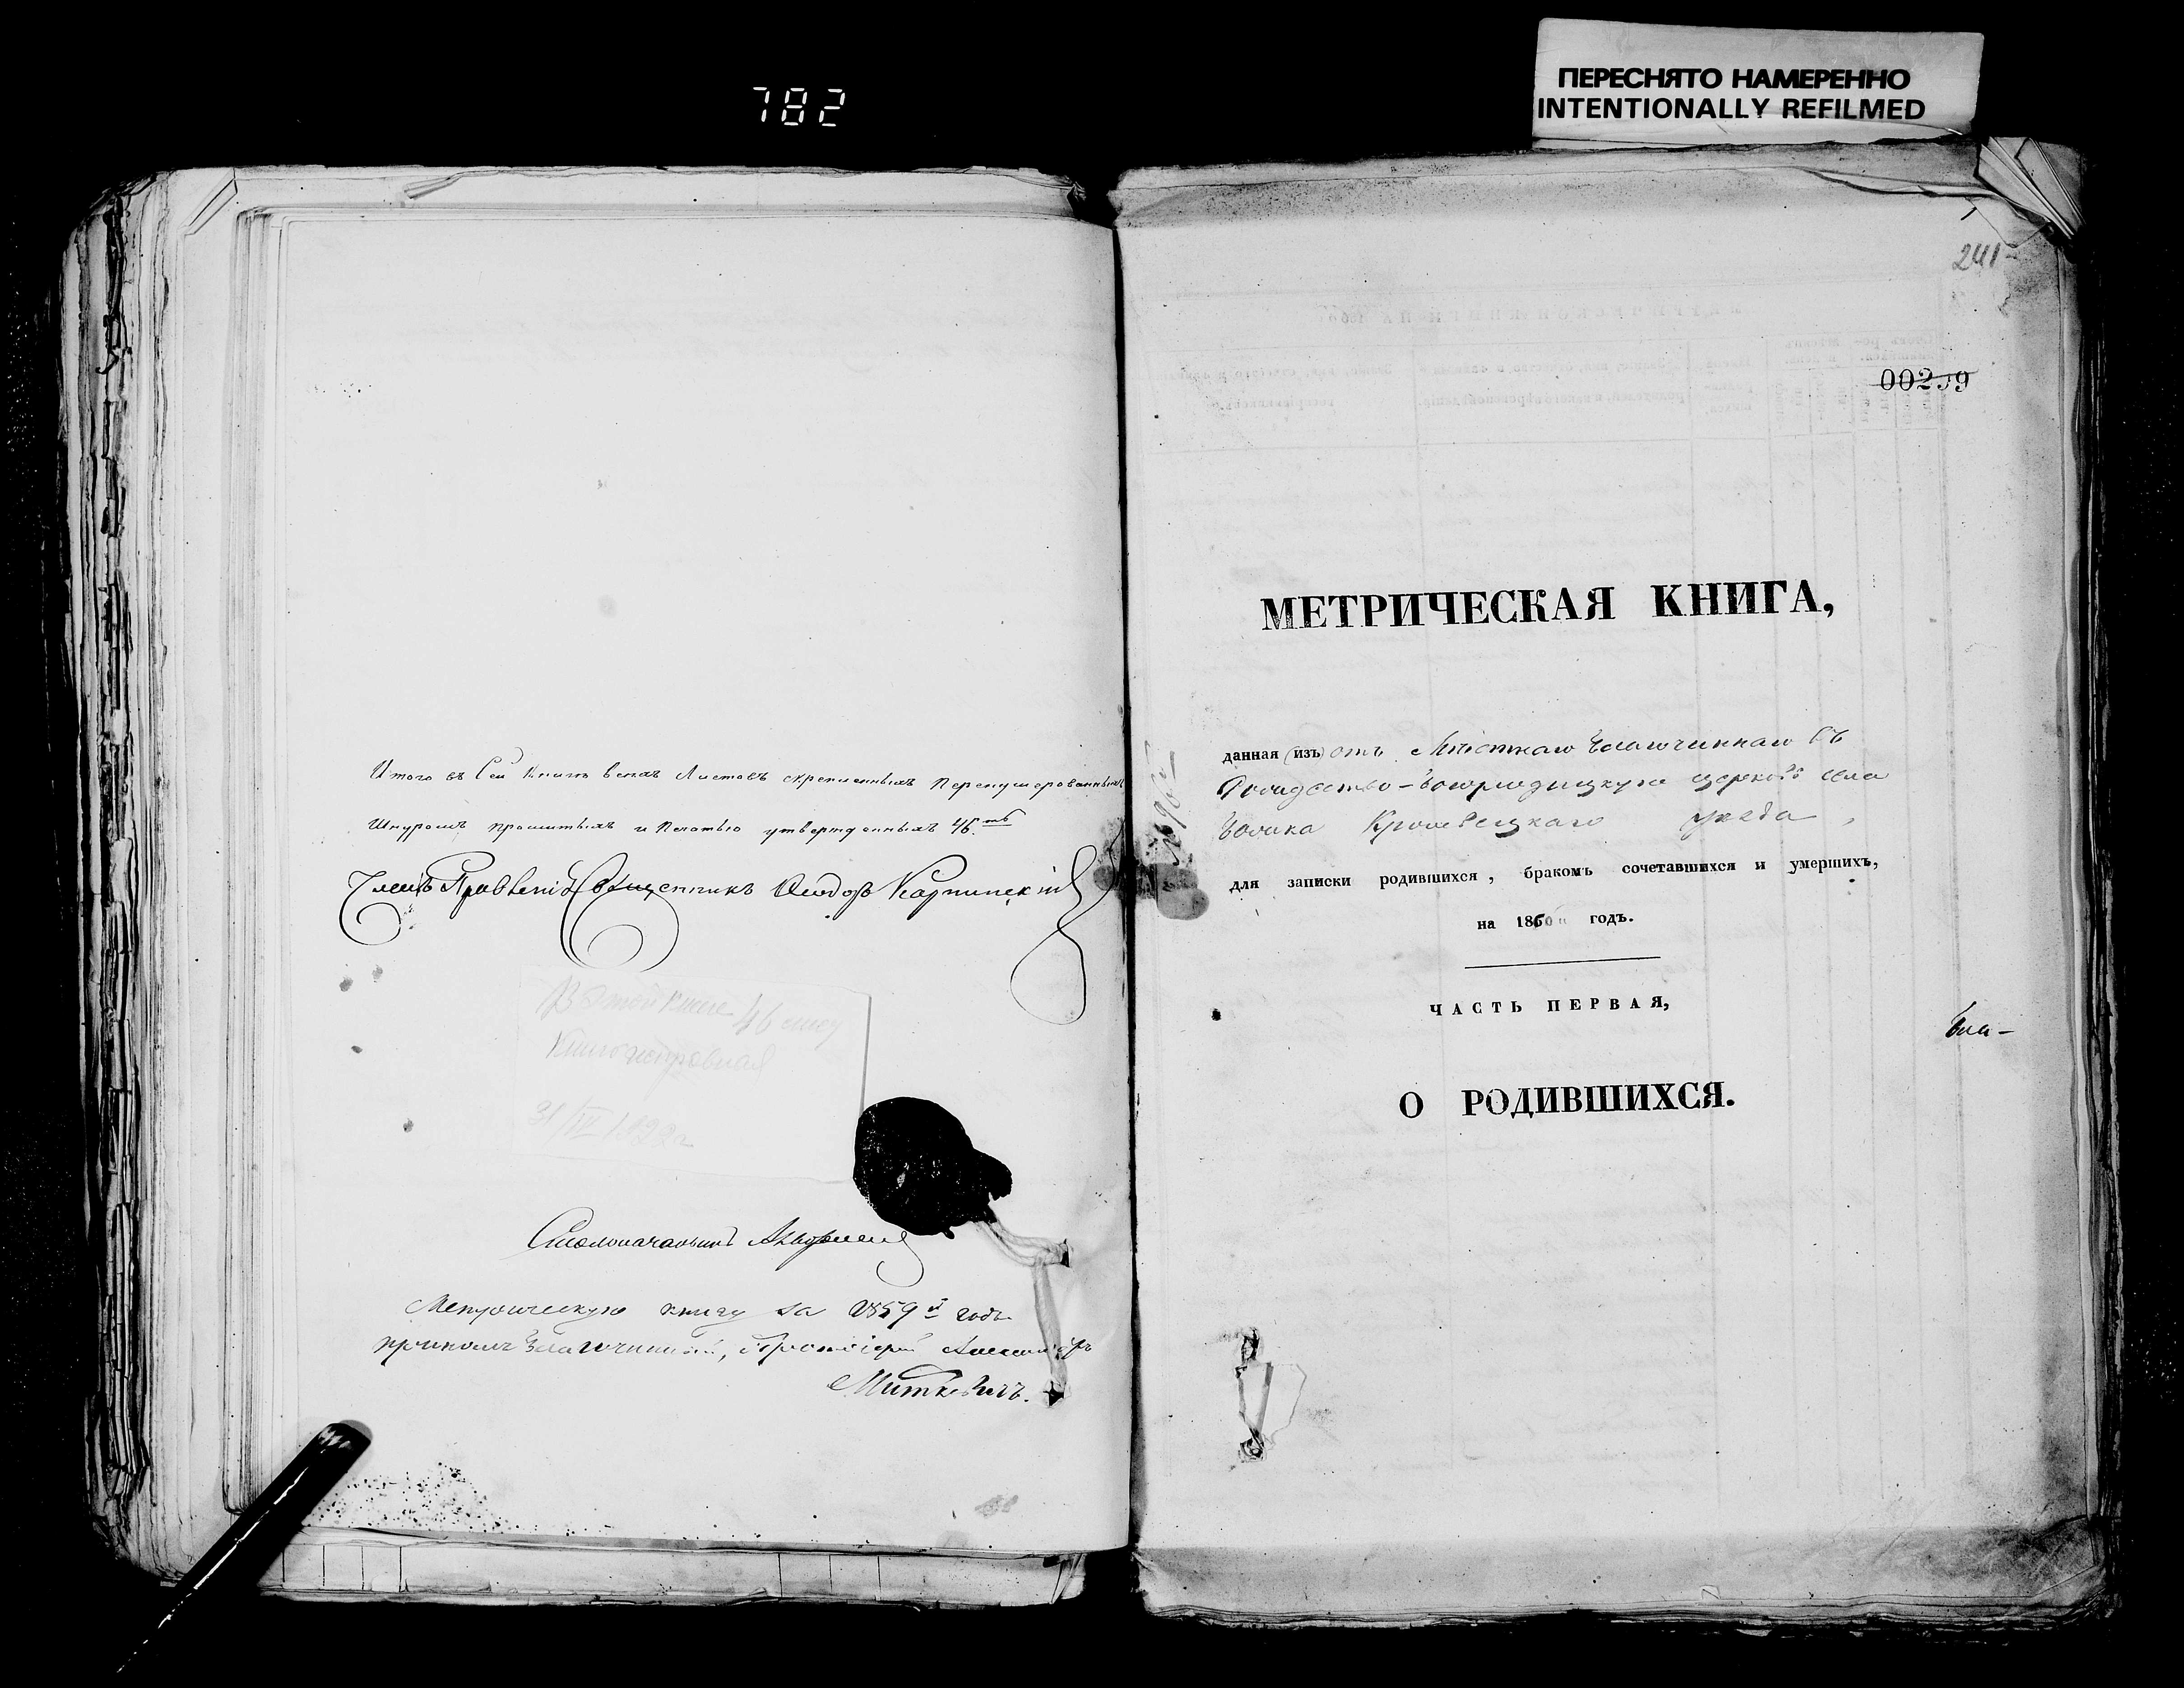 782
ПЕРЕСНЯТО НАМЕРЕННО
INTENTIONALLY REFILMED
Итого въ Сей Книгѣ всехъ Листовъ скрепленныхъ Перенумерованныхъ
Шнуромъ прошитыхъ и Печатью утвержденныхъ 46.ть
Членъ Правленія Священникъ Феодоръ Карпинскій
В этой книге 46 лист
Книга исправная
31/IV 1922 г
Столоначальникъ
Метрическую книгу за 1859й годъ
принялъ Благочинный, Протоіерей Александръ
Миткевичъ.
241
00259
МЕТРИЧЕСКАЯ КНИГА,
данная (изъ) отъ Мѣстнаго Благочиннаго въ
Рождество-Богородицкую церковь села
Кролевецкаго уезда,
для записки родившихся, бракомъ сочетавшихся и умершихъ,
на 1860й годъ.
ЧАСТЬ ПЕРВАЯ,
Бла-
О РОДИВШИХСЯ.